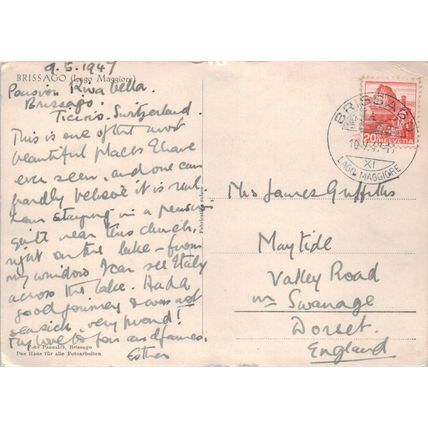 9.5.1947
BRISSAGO (Lago Maggiore)
Pension Riva bella.
Brissago.
Ticino. Switzerland.
This is one of the most
beautiful places I have
ever seen, and one can
hardly believe it is real.
I am staying in a pension
quite near this church,
right on the lake - from
my window I can see Italy
across the lake. Had a
good journey & was not
seasick, very proud!
My love to you and James.
Esther
Foto Pancaldi, Brissago
Das Haus für alle Fotoarbeiten
BRISSAGO
LAGO MAGGIORE
XI
20 HELVETIA
Mrs James Griffiths
Maytide
Valley Road
nr Swanage
Dorset.
England